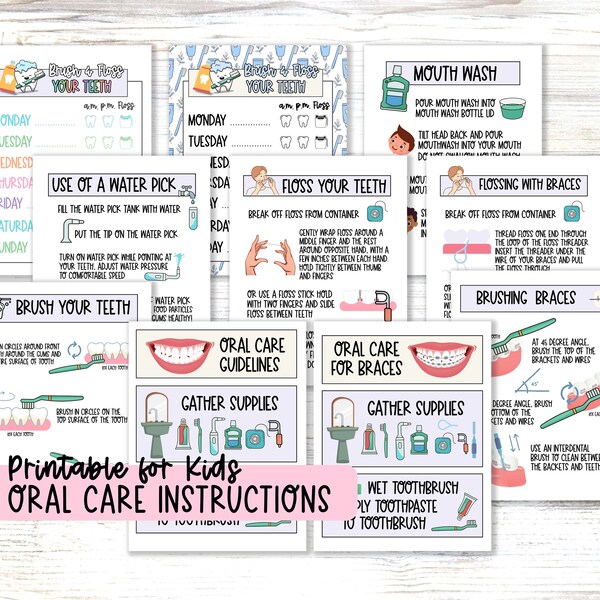 Brush & Floss
YOUR TEETH
a.m. p.m. Floss
TUESDAY
Brush & Floss
YOUR TEETH
a.m. p.m. Floss
MONDAY
TUESDAY
MOUTH WASH
POUR MOUTH WASH INTO
MOUTH WASH BOTTLE LID
TILT HEAD BACK AND POUR
MOUTHWASH INTO YOUR MOUTH
DO NOT SWALLOW MOUTH WASH
USE OF A WATER PICK
FILL THE WATER PICK TANK WITH WATER
PUT THE TIP ON THE WATER PICK
TURN ON WATER PICK WHILE POINTING AT
YOUR TEETH, ADJUST WATER PRESSURE
TO COMFORTABLE SPEED
WATER PICK
FOOD PARTICLES
GUMS HEALTHY)
FLOSS YOUR TEETH
BREAK OFF FLOSS FROM CONTAINER
GENTLY WRAP FLOSS AROUND A
MIDDLE FINGER AND THE REST
AROUND OPPOSITE HAND, WITH A
FEW INCHES BETWEEN EACH HAND.
HOLD TIGHTLY BETWEEN THUMB
AND FINGERS
OR USE A FLOSS STICK HOLD
WITH TWO FINGERS AND SLIDE
FLOSS BETWEEN TEETH
FLOSSING WITH BRACES
BREAK OFF FLOSS FROM CONTAINER
THREAD FLOSS ONE END THROUGH
THE LOOP OF THE FLOSS THREADER.
INSERT THE THREADER UNDER THE
WIRE OF YOUR BRACES AND PULL
THE FLOSS THROUGH
BRUSH YOUR TEETH
IN CIRCLES AROUND FRONT
AROUND THE GUMS AND
SURFACE OF TOOTH
BRUSH IN CIRCLES ON THE
TOP SURFACE OF THE TOOTH
BRUSHING BRACES
AT 45 DEGREE ANGLE,
BRUSH THE TOP OF THE
BRACKETS AND WIRES
45°
DEGREE ANGLE,
BOTTOM OF THE
BRACKETS AND WIRES
USE AN INTERDENTAL
BRUSH TO CLEAN BETWEEN
THE BACKETS AND TEETH
ORAL CARE
GUIDELINES
GATHER SUPPLIES
TO TOOTHBRUSH
ORAL CARE
FOR BRACES
GATHER SUPPLIES
WET TOOTHBRUSH
TOOTHPASTE
TO TOOTHBRUSH
Printable for Kids
ORAL CARE INSTRUCTIONS